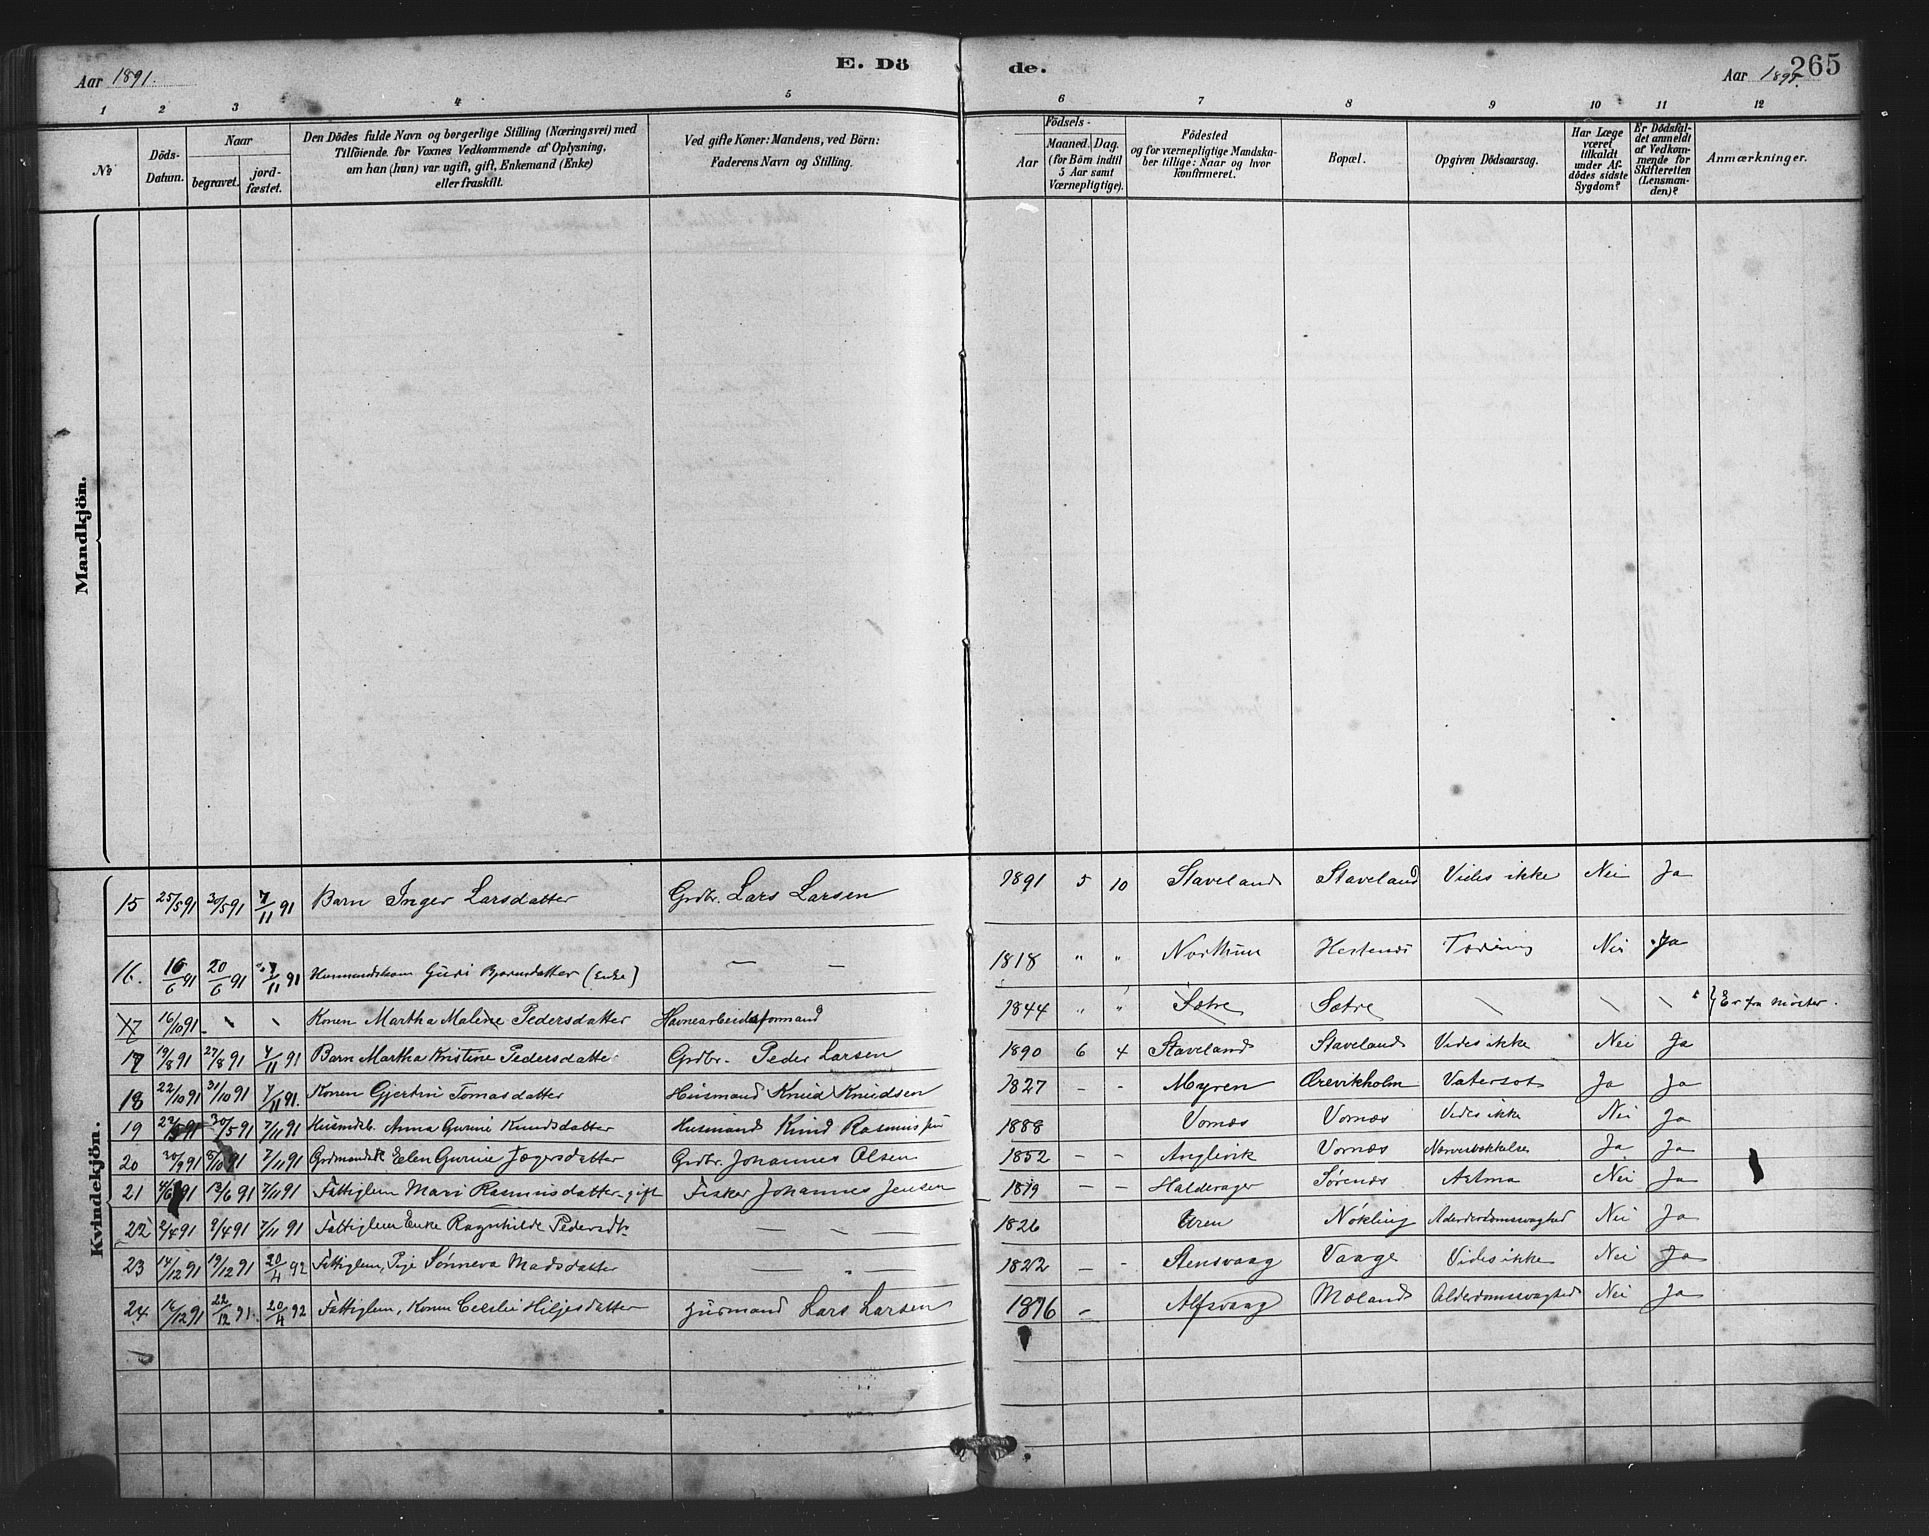 Aar 1891.
E. Dö
de.
Aar 189
265
1 2 3 4 5 6 7 8 9 10 11 12
№
Döds-
Datum.
Naar
begravet.
jord-
fæstet.
Den Dödes fulde Navn og borgerlige Stilling (Næringsvei) med
Tilföiende for Voxnes Vedkommende af Oplysning,
om han (hun) var ugift, gift, Enkemand (Enke)
eller fraskilt.
Ved gifte Koner: Mandens, ved Börn:
Faderens Navn og Stilling.
Födsels-
Aar
Maaned. Dag.
(for Börn indtil
5 Aar samt
Værnepligtige).
Födested
og for værnepligtige Mandska-
ber tillige: Naar og hvor
konfirmeret.
Bopæl.
Opgiven Dödsaarsag.
Har Læge
været
tilkaldt
under Af-
dödes sidste
Sygdom?
Er Dödsfal-
det anmeldt
af Vedkom-
mende for
Skifteretten
(Lensman-
den)?
Anmærkninger.
Mandkjön.
Kvindekjön.
15 25/5 91 30/5 91 7/11 91 Barn Inger Larsdatter Grdbr. Lars Larsen 1891 5 10 Staveland Staveland Vides ikke Nei Ja
16. 16/6 91 20/6 91 7/11 91 Guri Bjørnsdatter (Enke) — — 1818 " " Hestenes Tæring Nei Ja
17 16/10 91 - \ \ Konen Martha Malene Pedersdatter Havnearbeidsformand 1844 " " Sætre Sætre \ \ \ Er fra Moster.
17 19/8 91 27/8 91 7/11 91 Barn Martha Kristine Pedersdatter Grdbr. Peder Larsen 1890 6 4 Staveland Staveland Vides ikke Nei Ja
18 22/10 91 31/10 91 7/11 91. Konen Gjertru Tomasdatter Husmand Knud Knudsen 1827 - - Myren Vatersot Ja Ja
19 91 30/5 91 7/11 91 Anna Gurine Knudsdatter Husmand Knud 1888 Vornæs Vornæs Vides ikke Nei Ja
20 30/9 91 5/10 91 7/11 91 Elen Gurine Jægersdatter Grdbr. Johannes Olsen 1852 - - Anglevik Vornæs Ja Ja
21 91 13/6 91 7/11 91 Fattiglem Mari Rasmusdatter gift Fisker Johannes Jensen 1819 - - Halderager Sørenæs Astma Nei Ja
22 2/4 91 9/4 91 7/11 91 Fattiglem Enke Ragnhilde Pedersdtr — — 1826 Uren Nøkling Alderdomssvaghed Nei Ja
23 14/12 91 19/12 91 20/4 92 Fattiglem, Pige Sønneva Madsdatter — " — 1822 - - Stensvaag Vaage Vides ikke Nei Ja
24 16/12 91 22/12 91. 20/4 92 Fattiglem, Konen Cecelie Hiljesdatter Lars Larsen - Alfsvaag Mæland Alderdomssvaghed Nei Ja